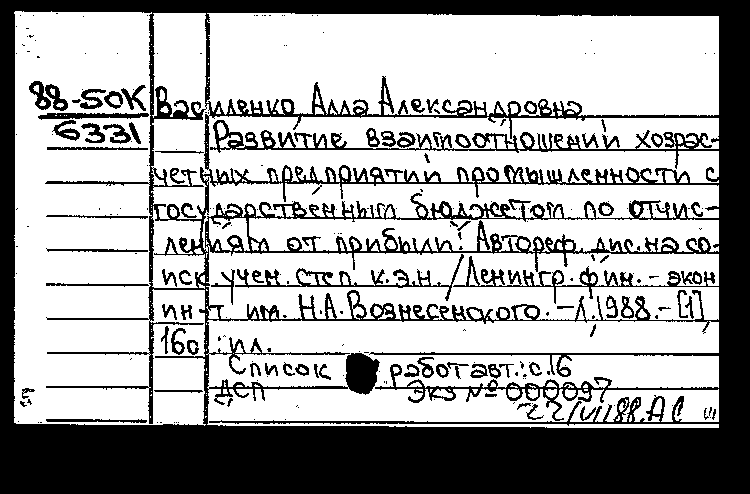 88-50К Василенко, Алла Александровна.
6331 Развитие взаимоотношений хозрас-
четных предприятий промышленности с
государственным бюджетом по отчис-
лениям от прибыли: Автореф. дис. на со-
иск. учен. степ. к.э.н. / Ленингр. фин.-экон
ин-т им. Н.А. Вознесенского. - Л., 1988. - [1],
16с : ил.
Список работ авт.: с.16
ДСП Экз № 000097
22/VII88. АС VI